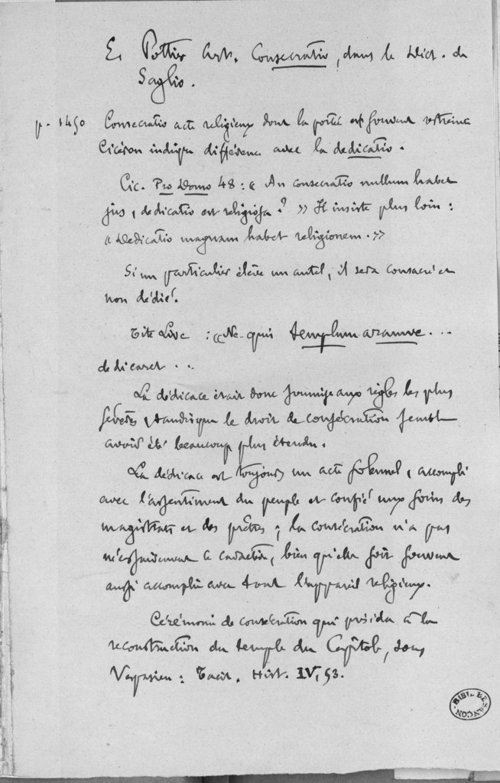 E. Pottier Art. Consecratio, dans le Dict. de
Saglio.
p. 1450 Consecratio acte religieux dont la portée est souvent restreinte
Cicéron indique différence avec la dedicatio.
Cic. Pro Domo 48 : « An consecratio nullum habet
jus, dedicatio est religiosa ? » Il insiste plus loin :
« Dedicatio magnam habet religionem. »
Si un particulier élève un autel, il sera consacré et
non dédié.
Tite Live : « Ne quis templum aramve ...
dedicaret ...
La dédicace était donc soumise aux règles les plus
sévères, tandis que le droit de consécration semble
avoir été beaucoup plus étendu.
La dédicace est toujours un acte solennel, accompli
avec l'assentiment du peuple et confié aux soins des
magistrats et des prêtres ; la consécration n'a pas
nécessairement ce caractère, bien qu'elle soit souvent
aussi accomplie avec tout l'appareil religieux.
Cérémonie de consécration qui présida à la
reconstruction du temple du Capitole, sous
Vespasien : Tacit. Hist. IV, 53.
BIBL. DE BESANCON